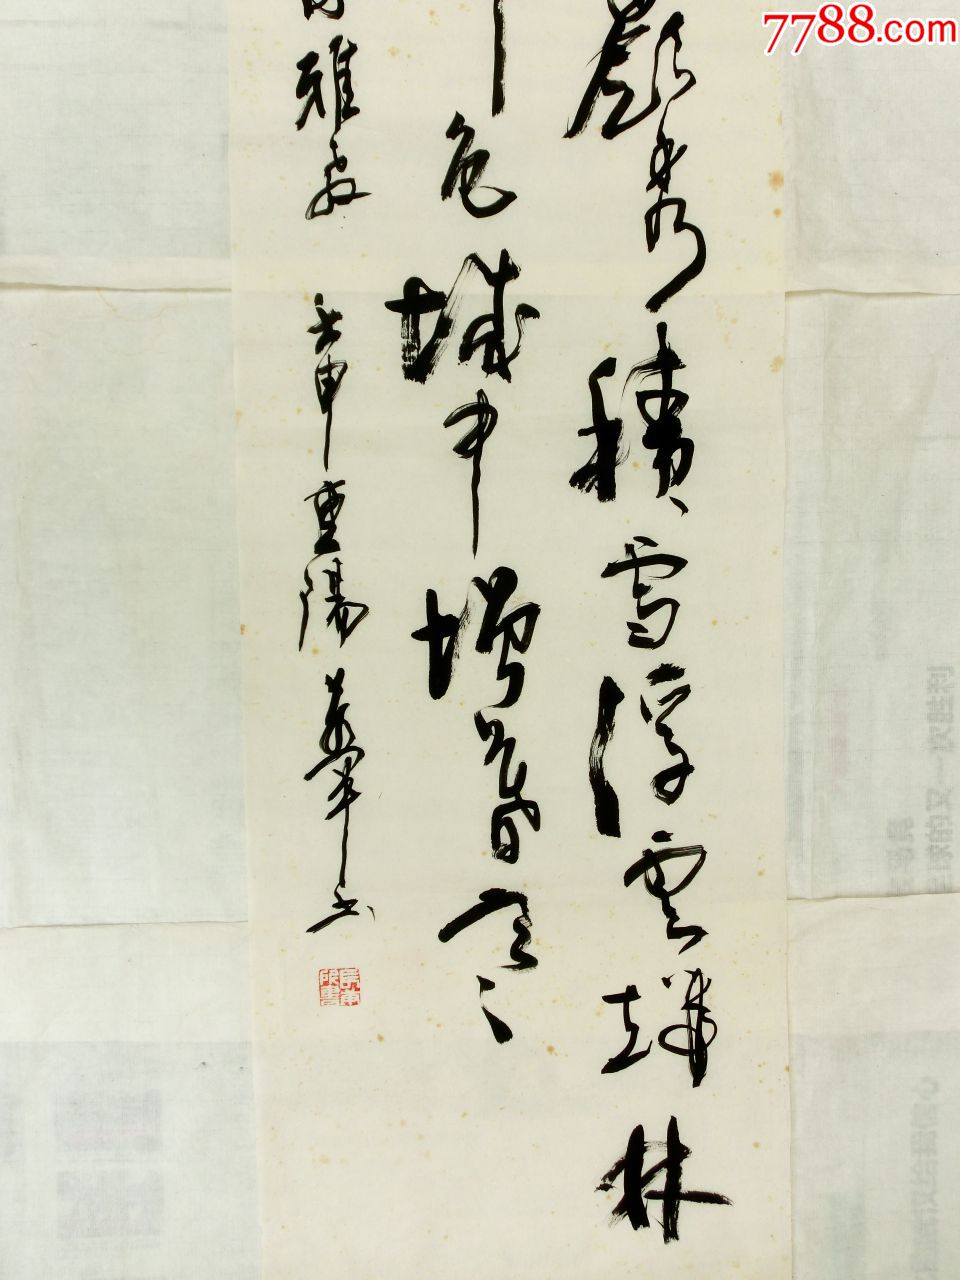 7788.com
嶺秀積雪浮雲端林
色城中增暮寒
雅
壬申重陽
书